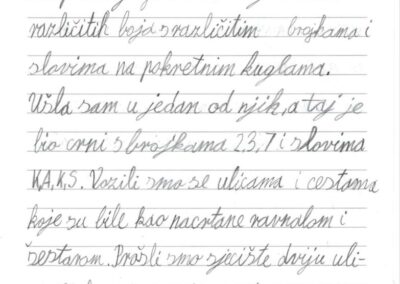 različitih boja s različitim brojkama i
slovima na pokretnim kuglama.
Ušla sam u jedan od njih, a taj je
bio crni s brojkama 2,3,7 i slovima
K,A,K,S. Vozili smo se ulicama i cestama
koje su bile kao nacrtane ravnalom i
šestarom. Prošli smo sjecište dviju uli-